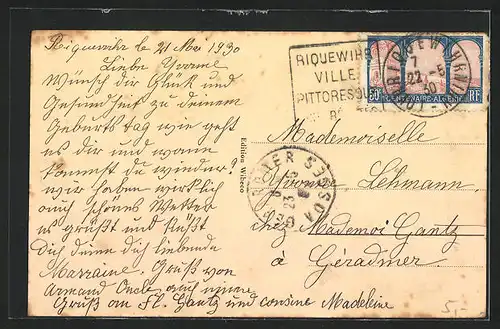 Riquewihr le 21 Mai 1930
Liebe Yvonne
Wünsch dir Glück und
Gesundheit zu deinem
Geburtstag wie geht
es dir und wann
kommst du wieder?
wir haben wirklich
auch schönes Wetter
es grüßt und küßt
Dich deine dich liebende
Marraine. Gruß von
Armand Onkle auch einen
Gruß an Fl. Gantz und cousine Madeleine
Edition Wibeco
RIQUEWIHR
VILLE
PITTORESQUE
7
22-5
30
50c
CENTENAIRE-ALGÉRIE
RF
Mademoiselle
Yvonne Lehmann
chez Mademoi Gantz
à Gérardmer
GERARDMER VOSGES
23
5,-